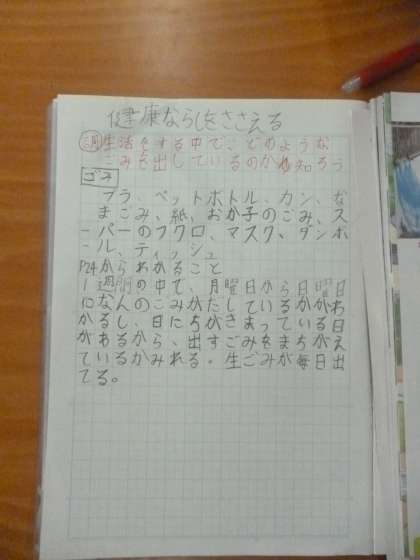 健康ならしをささえる
調生活をする中で、どのような
ごみを出しているのかを知ろう
ゴミ
プラ、ペットボトル、カン、な
まごみ、紙、おか子のごみ、ス
ーパーのフクロ、マスク、ダンボ
ール、ティッシュ
P24からわかること
1週間の中で、月曜日から日曜日
になんのごみがだしているかがわ
かるし、日にちがきまっている日
があるから、出すごみをまちがえ
ているかみれる。生ごみが毎日出
てる。